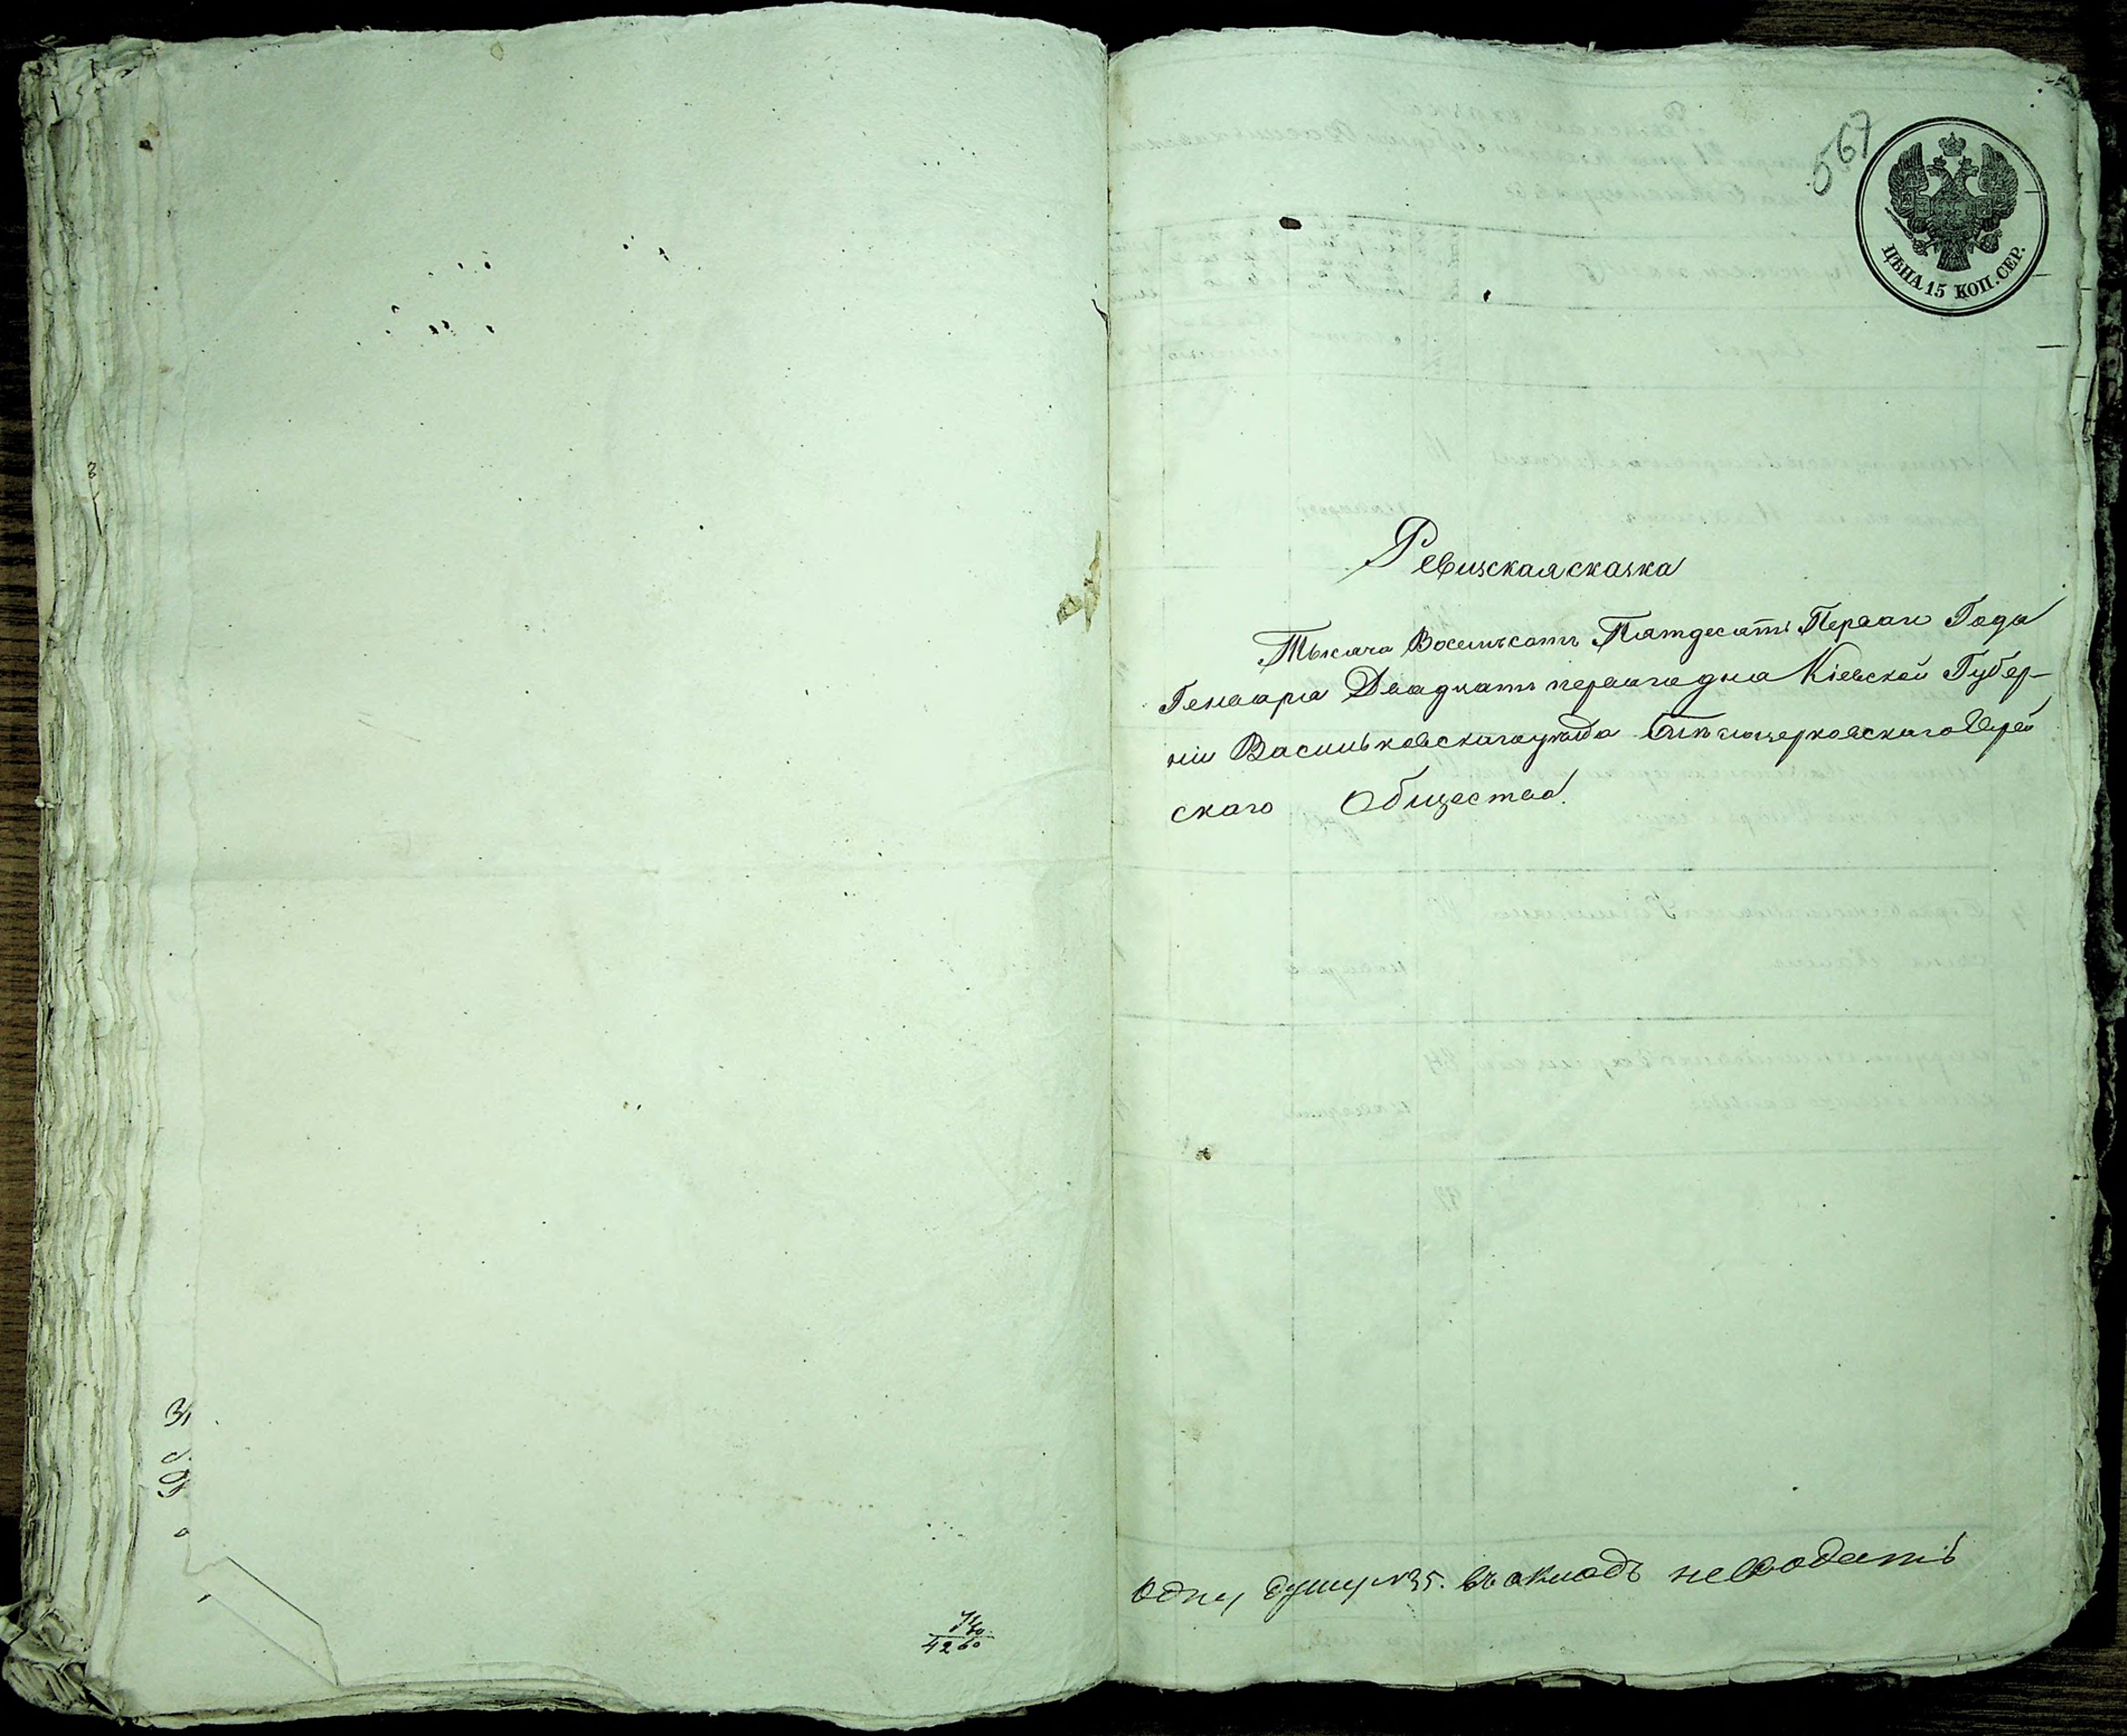 567
ЦѢНА 15 КОП. СЕР.
Ревизская сказка
Тысяча Восемьсотъ Пятдесятъ Перваго Года
Генваря Двадцать перваго дня Кіевской Губер-
ніи Васильковскаго уѣзда Бѣлоцерковскаго Еврей
скаго Общества.
Одну душу №35. въ окладъ не вводить
4260